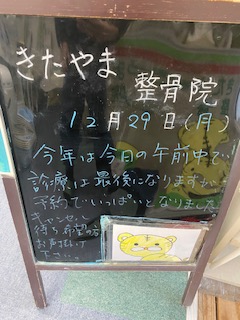 きたやま
整骨院
12月29日(月)
今年は今日の午前中で
診療は最後になりますが
予約でいっぱいとなりました
キャンセル
待ち希望の方
お声掛け
下さい